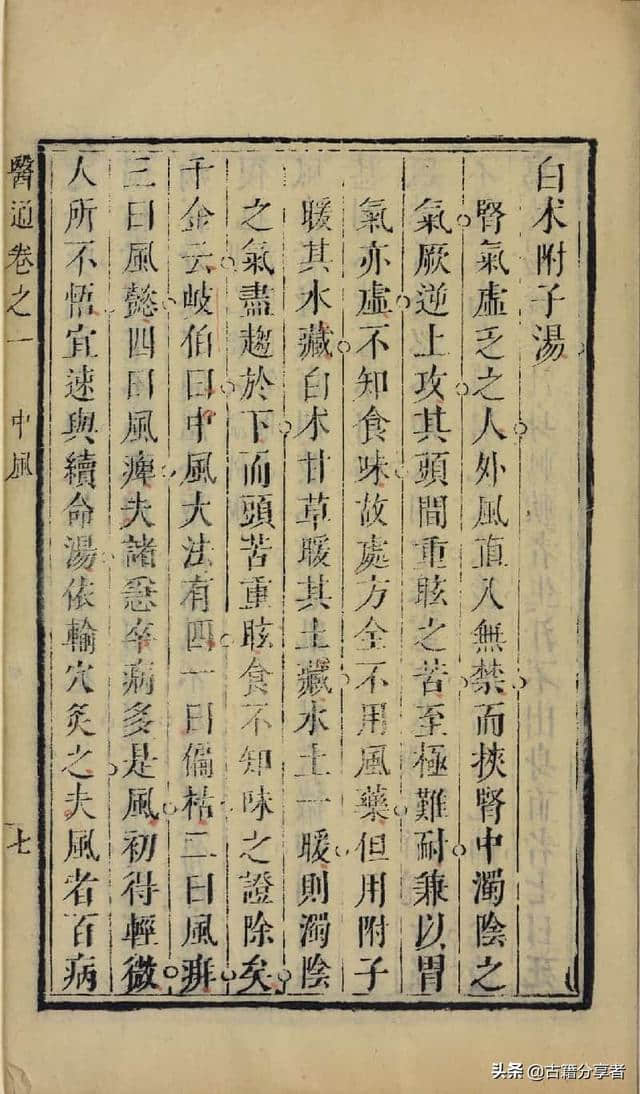 白朮附子湯
腎氣虛乏之人外風直入無禁而挾腎中濁陰之
氣厥逆上攻其頭間重眩之苦至極難耐兼以胃
氣亦虛不知食味故處方全不用風藥但用附子
暖其水藏白朮甘草暖其土藏水土一暖則濁陰
之氣盡趨於下而頭苦重眩食不知味之證除矣
千金云岐伯曰中風大法有四一曰偏枯二曰風痱
三曰風懿四曰風痺夫諸急卒病多是風初得輕微
人所不悟宜速與續命湯依輸穴灸之夫風者百病
醫通卷之一 中風 七
头条 @古籍分享者